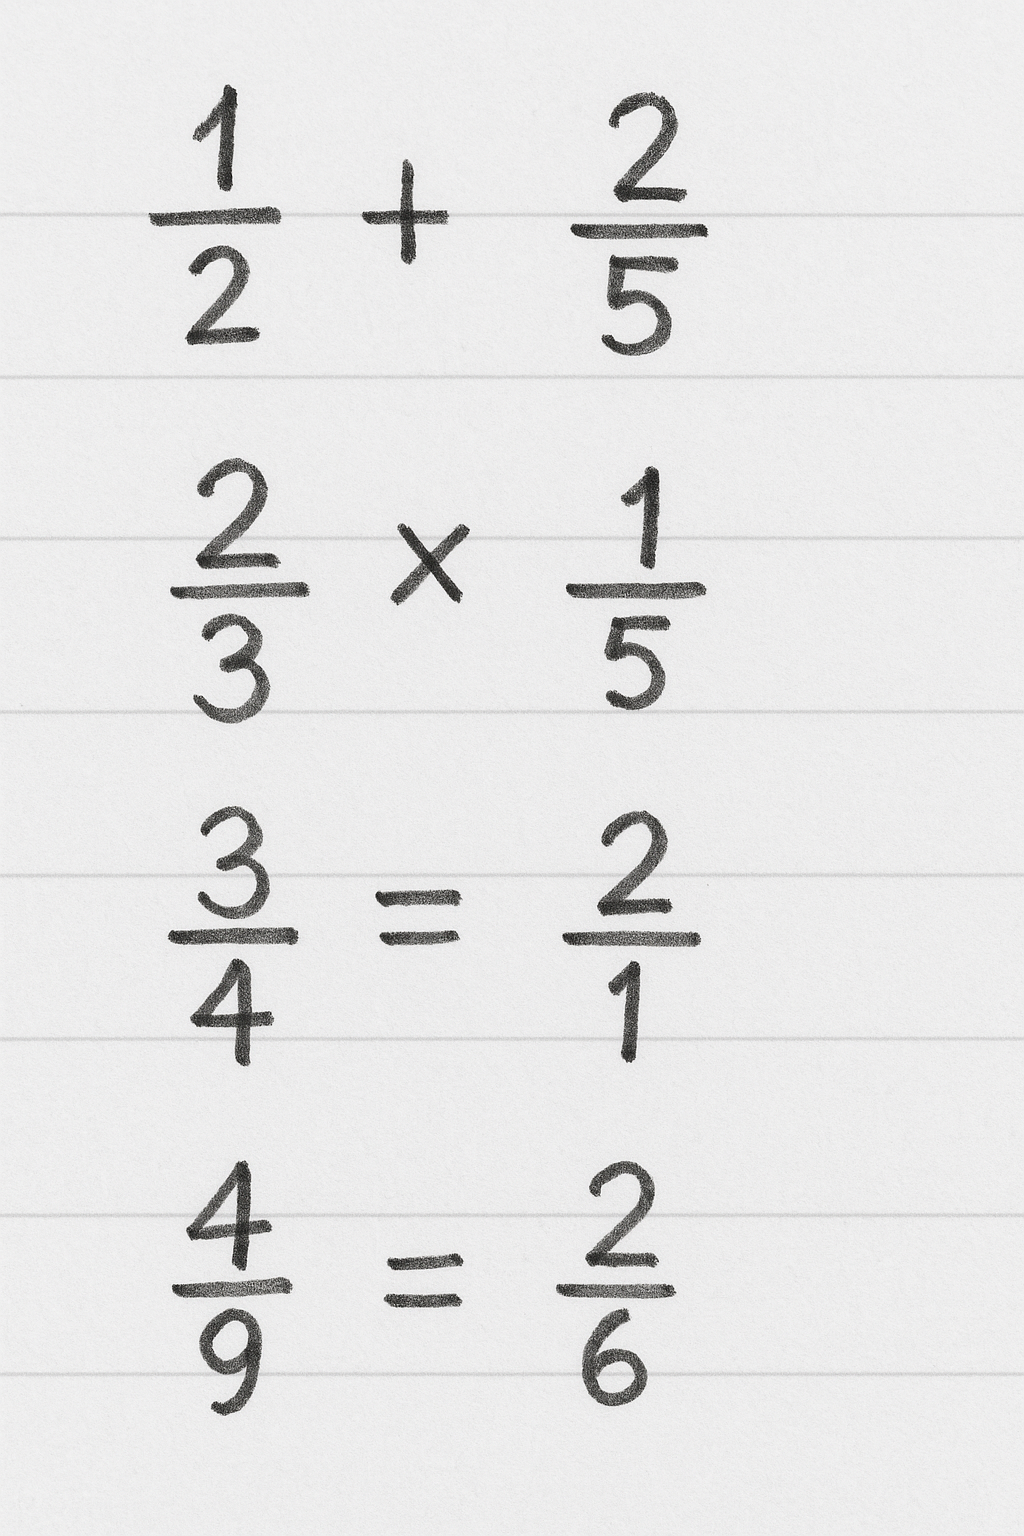 1/2 + 2/5
2/3 × 1/5
3/4 = 2/1
4/9 = 2/6